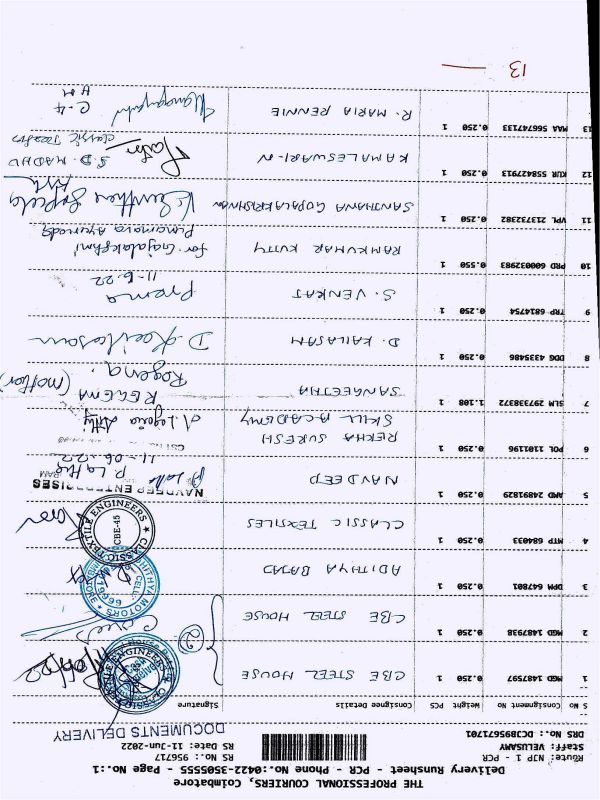 THE PROFESSIONAL COURIERS, Coimbatore
Delivery Runsheet - PCR - Phone No.:0422-3505555 - Page No.:1
Route: NJP 1 PCR
Staff: VELLUSAMY
DRS No.: DCB89567101
RS No.: 956717
RS Date: 11-Jun-2022
DOCUMENTS DELIVERY
S No Consignment No Weight PCS Consignee Details Signature
1 MGD 1487597 0.250 1 CBE STEEL HOUSE
2 MGD 1487938 0.250 1 CBE STEEL HOUSE
3 DPM 647801 0.250 1 ADITHYA BAJAJ
4 MTP 684033 0.250 1 CLASSIC TEXTILES
CLASSIC TEXTILE ENGINEERS
CBE-45
5 AMD 24891829 0.250 1 NAVDEEP
NAVDEEP ENTERPRISES
11-06-22
6 POL 1181196 0.250 1 REKHA SURESH
SKILL ACADEMY
7 SLM 297338372 1.108 1 SANGEETHA
REGENA (mother)
Regena.
8 DDG 4335486 0.250 1 D. KAILASAM
D. Kailasam
9 TRP 6814754 0.250 1 S. VENKAT
Prema
11.6.22
10 PRD 600032983 0.550 1 RAMKUMAR KUTTY
for Gajalakshmi
Punarnava Ayurveda
11 VPL 217372382 0.250 1 SANTHANA GOPALAKRISHNAN
12 KUR 558427913 0.250 1 KAMALESWARI-N
S.D. MADHU
13 MAA 566747133 0.250 1 R. MARIA RENNIE
C-4
13